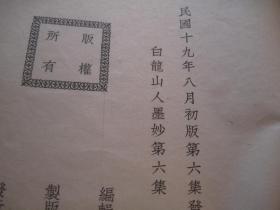 民國十九年八月初版第六集發
白龍山人墨妙第六集
版權
所有
編輯
製版